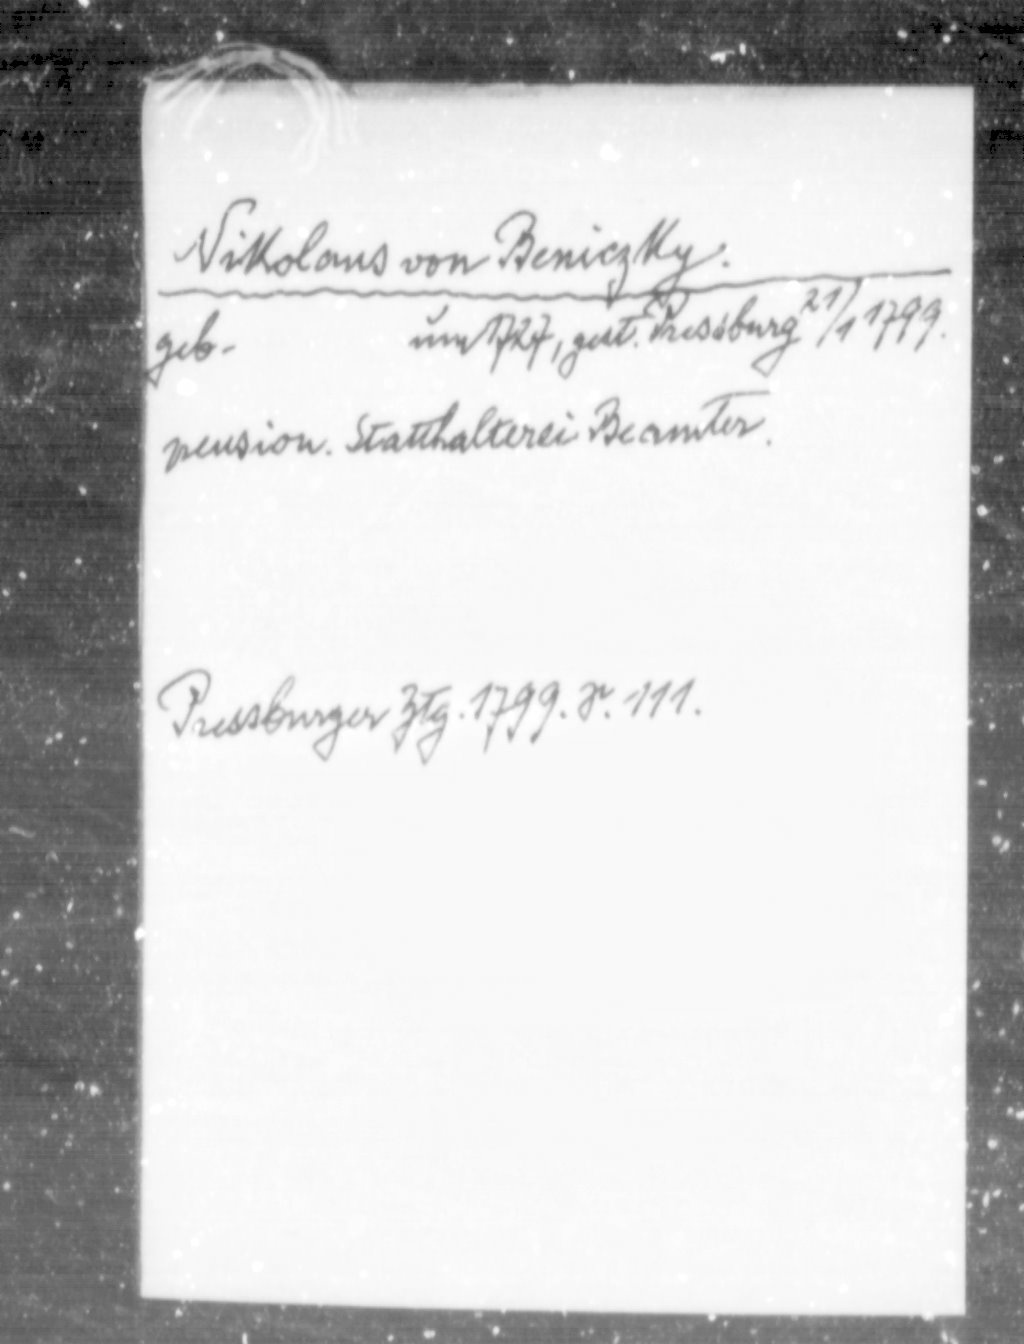 Nikolaus von Beniczky.
geb. um 1727, gest. Pressburg 21/1 1799.
pension. Statthalterei Beamter.
Pressburger Ztg. 1799. S. 111.